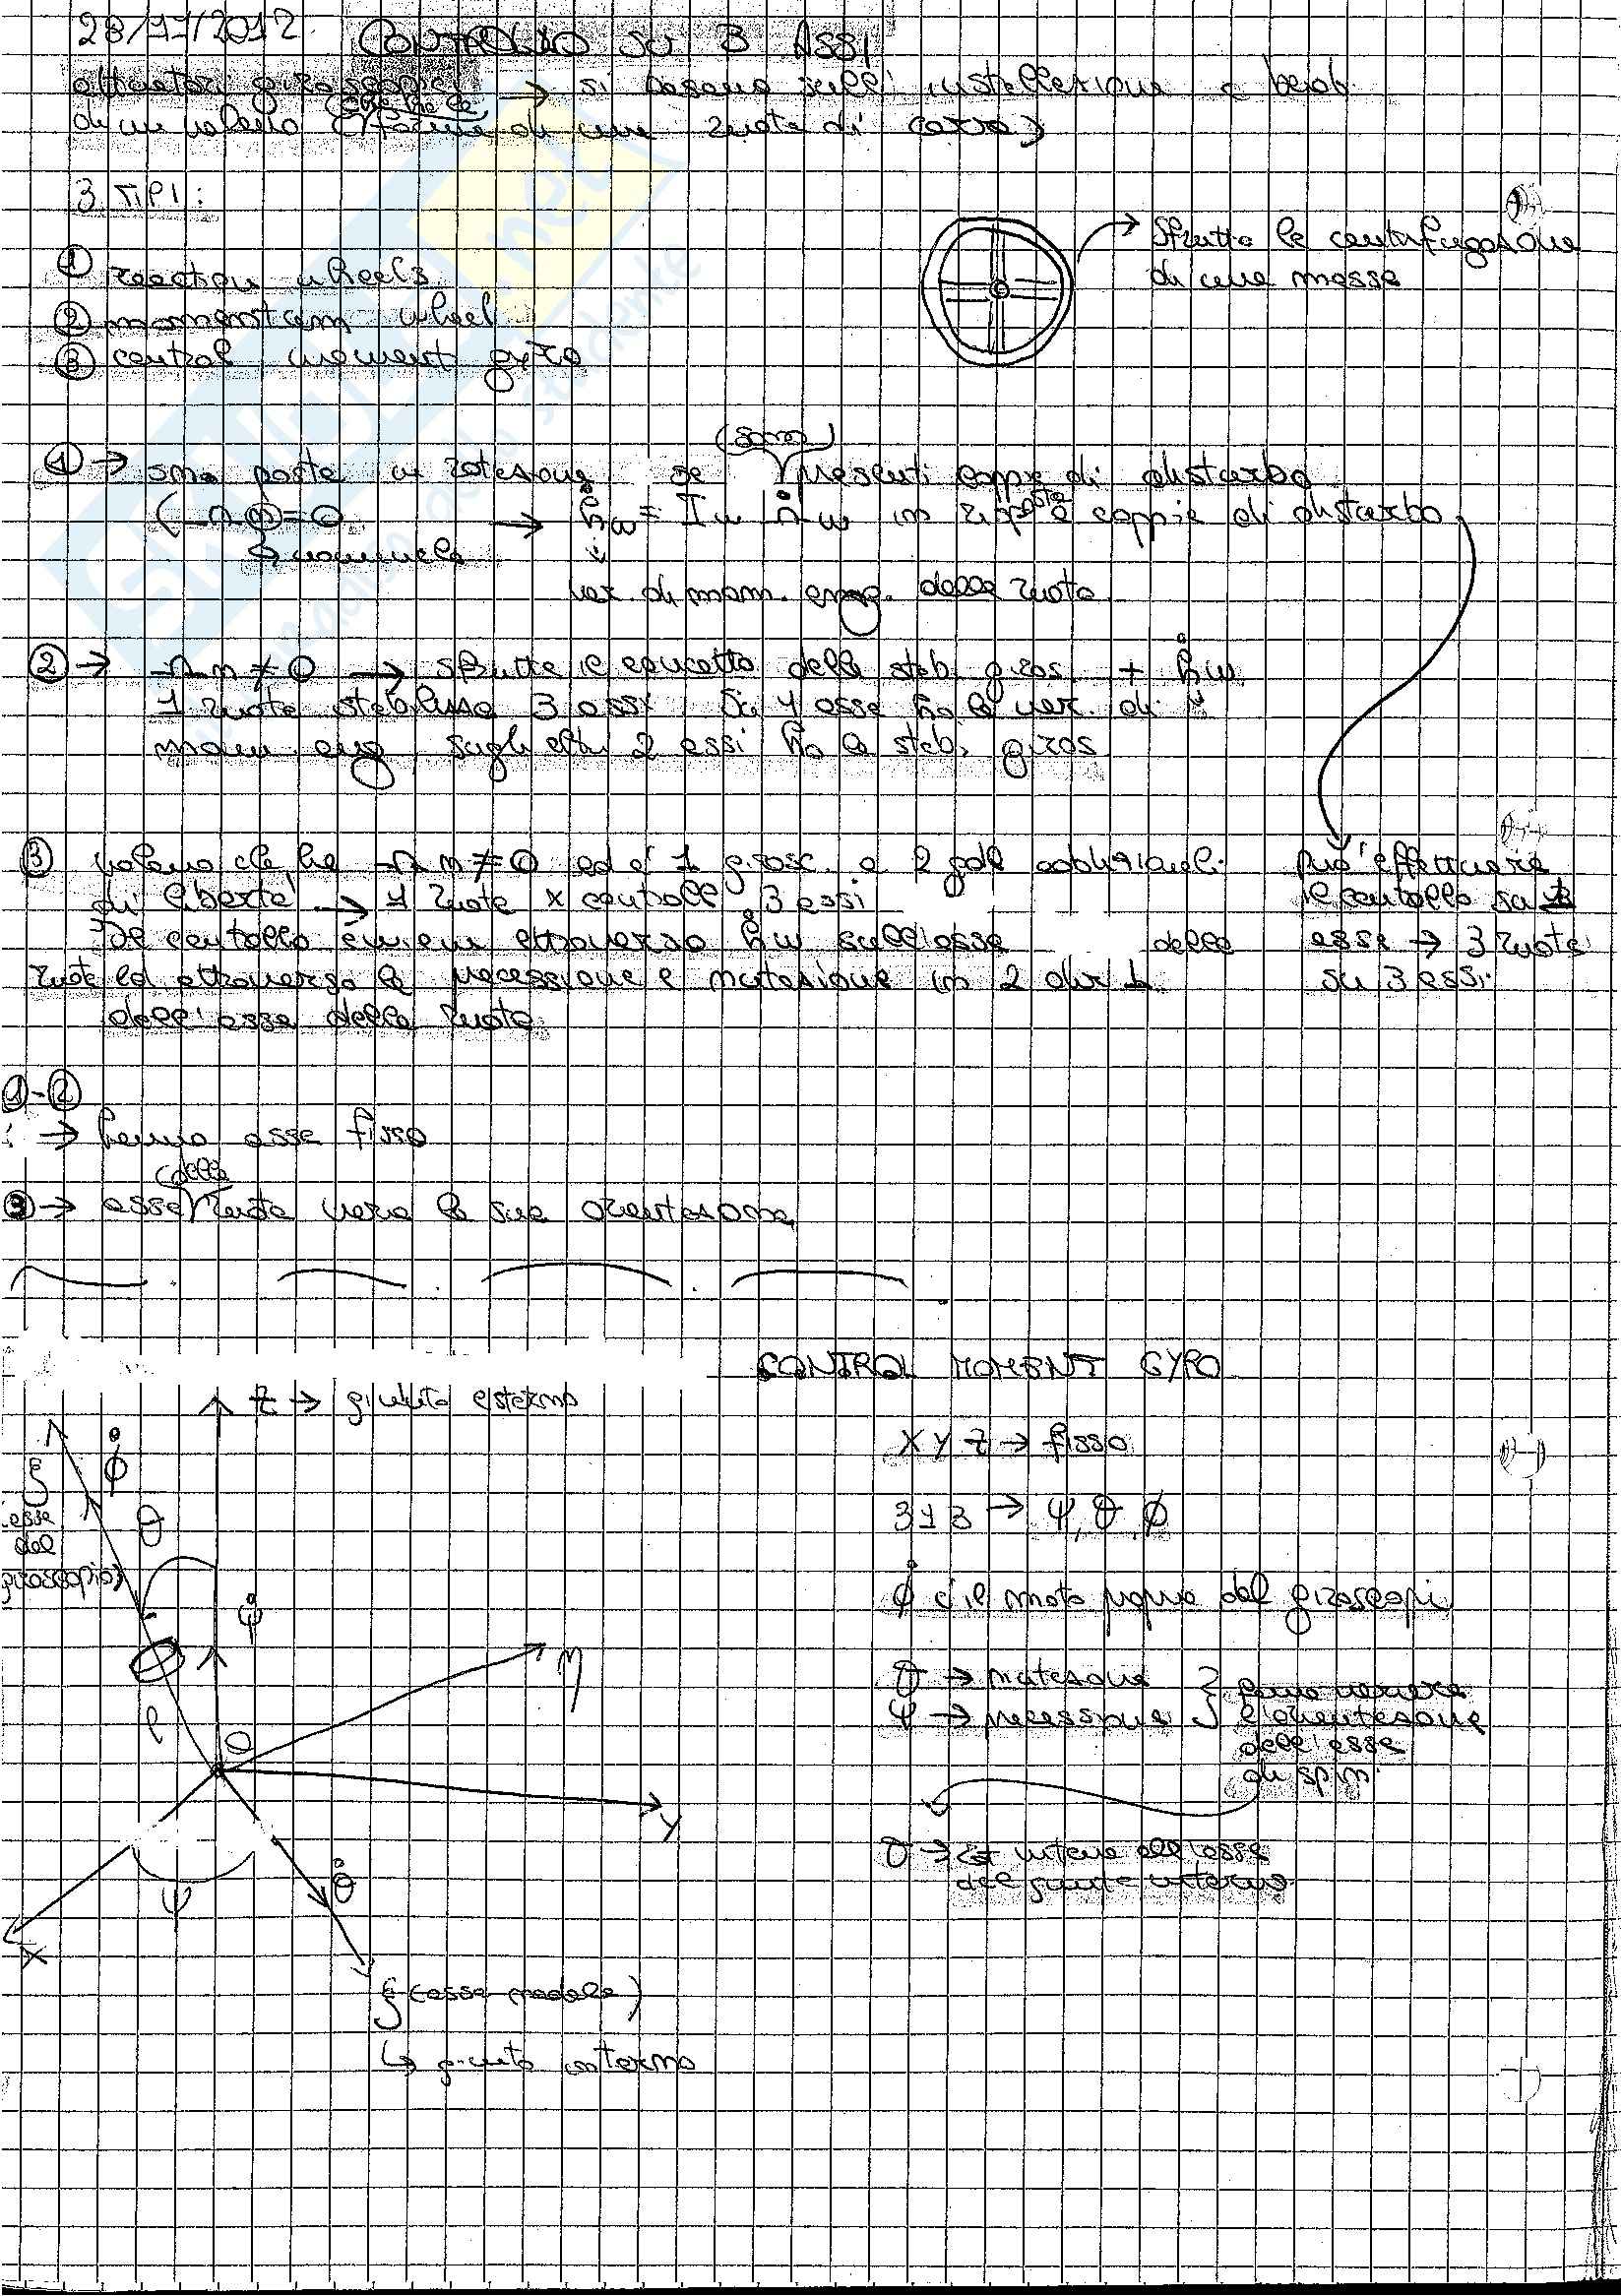 28/11/2012. CONTROLLO SU 3 ASSI
attuatori giroscopici → si basano sull'installazione a bordo
di un volano (che ha la forma di una ruota di carro)
3 TIPI:
① reaction wheels
② momentum wheel
③ control moment gyro
Sfrutta la centrifugazione
di una massa
① → sono poste in rotazione se (sono) presenti coppie di disturbo
(Ωn = 0 → ḣw = Iw Ω̇w in risposta a coppie di disturbo
↳ nominale
var. di mom. ang. della ruota
② → Ωn ≠ 0 → sfrutta il concetto della stab. giros. + ḣw
1 ruota stabilizza 3 assi. Su 1 asse ho la var. di
mom. ang. sugli altri 2 assi ho la stab. giros.
③ volano che ha Ωn ≠ 0 ed è 1 girosc. a 2 gdl addizionali
di libertà → 1 ruota x controll 3 assi
Il controllo avviene attraverso ḣw sull'asse della
ruota ed attraverso la precessione e nutazione in 2 dir ⊥
dell'asse della ruota.
può effettuare
il controllo su 1
asse → 3 ruote
su 3 assi.
①-②
→ hanno asse fisso
③ → asse della ruota varia la sua orientazione
CONTROL MOMENT GYRO
Z → giunto esterno
X Y Z → fisso
3 1 3 → ψ, θ, φ
φ̇ è il moto proprio del giroscopi
θ → nutazione
ψ → precessione
fanno variare
l'orientazione
dell'asse
di spin.
θ → rot intorno all'asse
del giunto interno
ζ
asse
del
giroscopio)
φ̇
θ
ψ̇
η
O
Y
ψ
X
θ̇
ξ (asse nodale)
↳ giunto interno